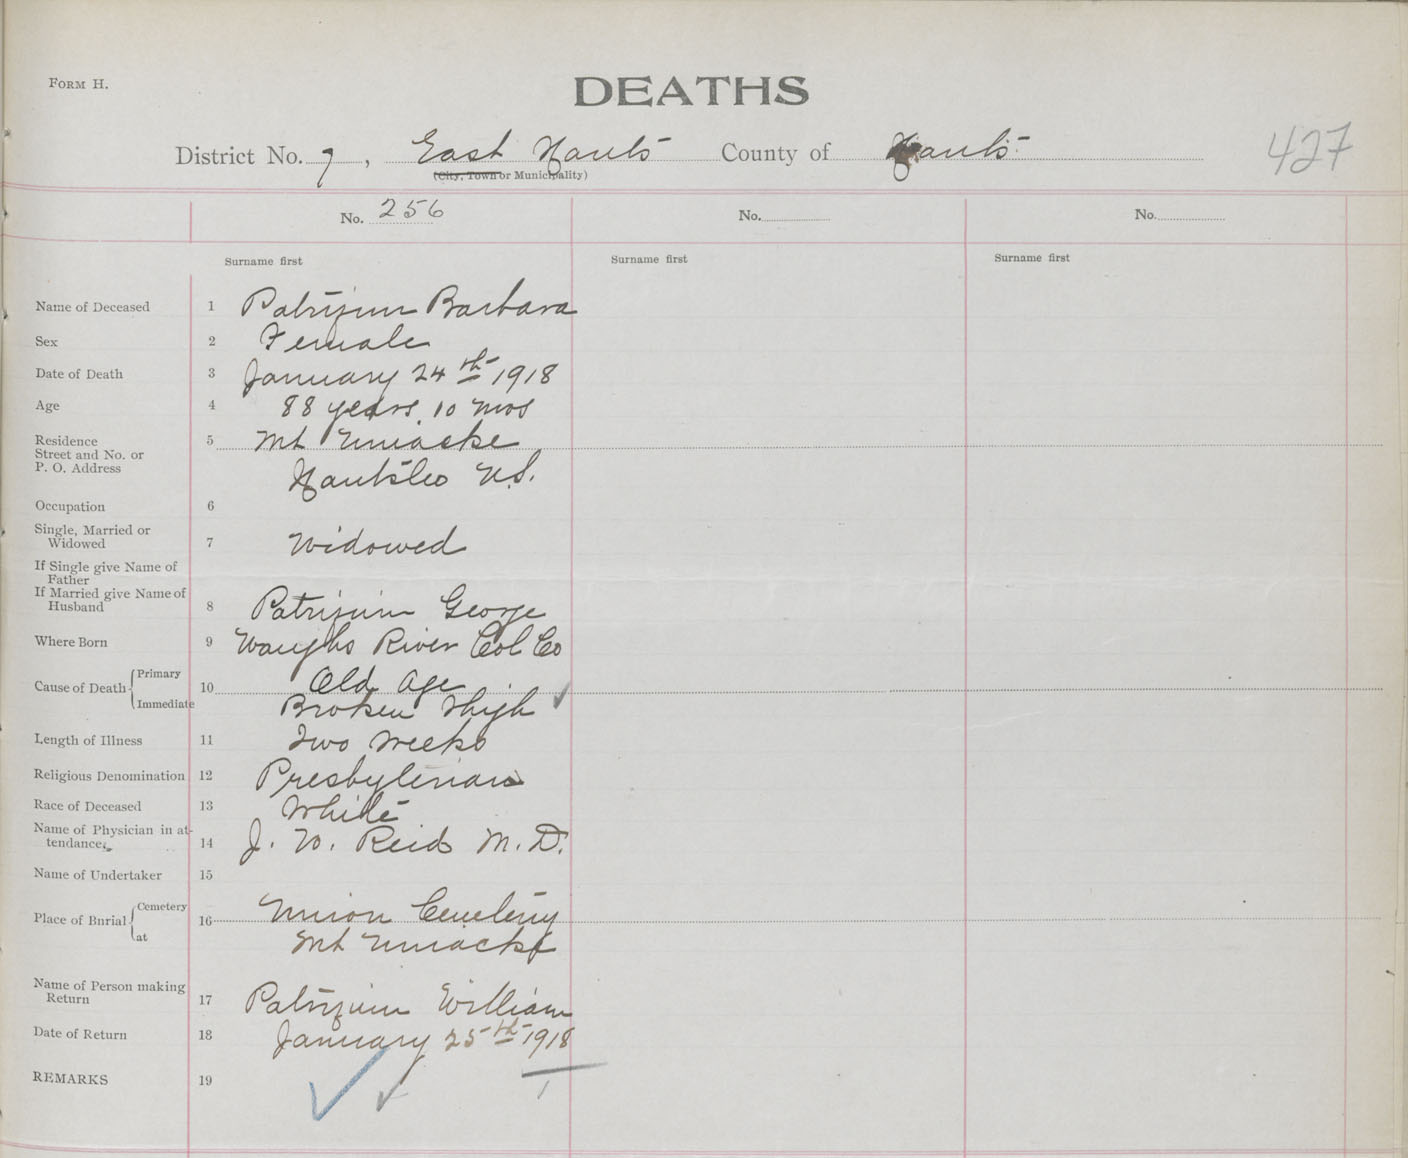 FORM H.
DEATHS
427
District No. 7, East Hants County of Hants
(City, Town or Municipality)
No. 256 No. No.
Surname first Surname first Surname first
Name of Deceased 1 Patriquin Barbara
Sex 2 Female
Date of Death 3 January 24th 1918
Age 4 88 years 10 mos
Residence 5 Mt Uniacke
Street and No. or
P. O. Address Hants Co N.S.
Occupation 6
Single, Married or
Widowed 7 Widowed
If Single give Name of
Father
If Married give Name of
Husband 8 Patriquin George
Where Born 9 Waughs River Col Co
Cause of Death Primary 10 Old Age
Immediate Broken Thigh
Length of Illness 11 Two Weeks
Religious Denomination 12 Presbyterian
Race of Deceased 13 White
Name of Physician in at-
tendance 14 J. W. Reid M.D.
Name of Undertaker 15
Place of Burial Cemetery 16 Union Cemetery
at Mt Uniacke
Name of Person making
Return 17 Patriquin William
Date of Return 18 January 25th 1918
REMARKS 19